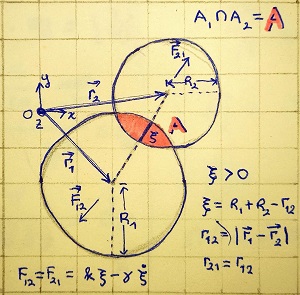 A₁∩A₂ = A
F⃗₂₁
R₂
y
r⃗₂
O
z
x
A
ξ
r⃗₁
F⃗₁₂
R₁
ξ>0
ξ = R₁+R₂-r₁₂
r₁₂=|r⃗₁-r⃗₂|
r₂₁=r₁₂
F₁₂=F₂₁= kξ-γξ̇